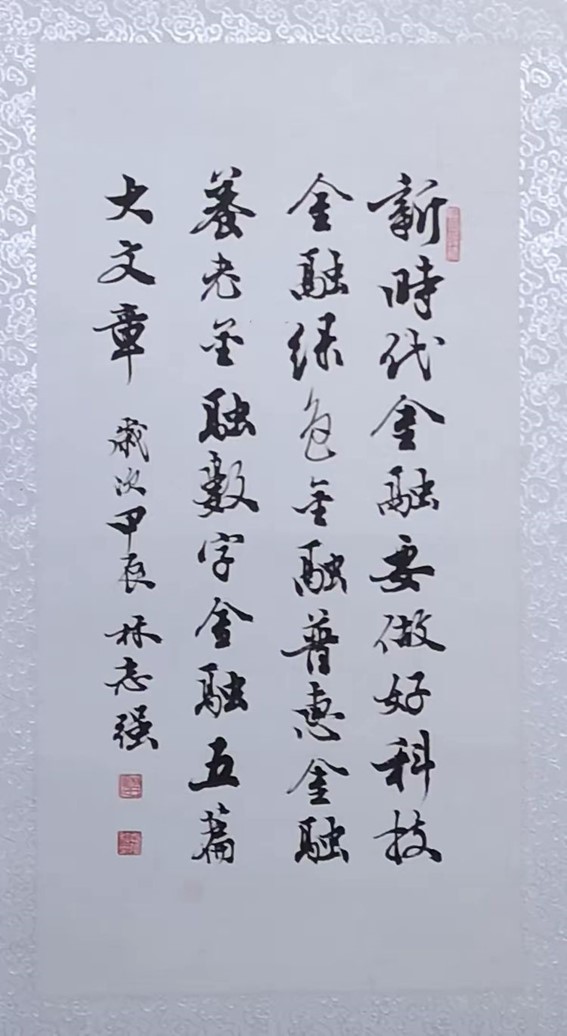 新時代金融要做好科技
金融绿色金融普惠金融
養老金融數字金融五篇
大文章 歲次甲辰 林志强